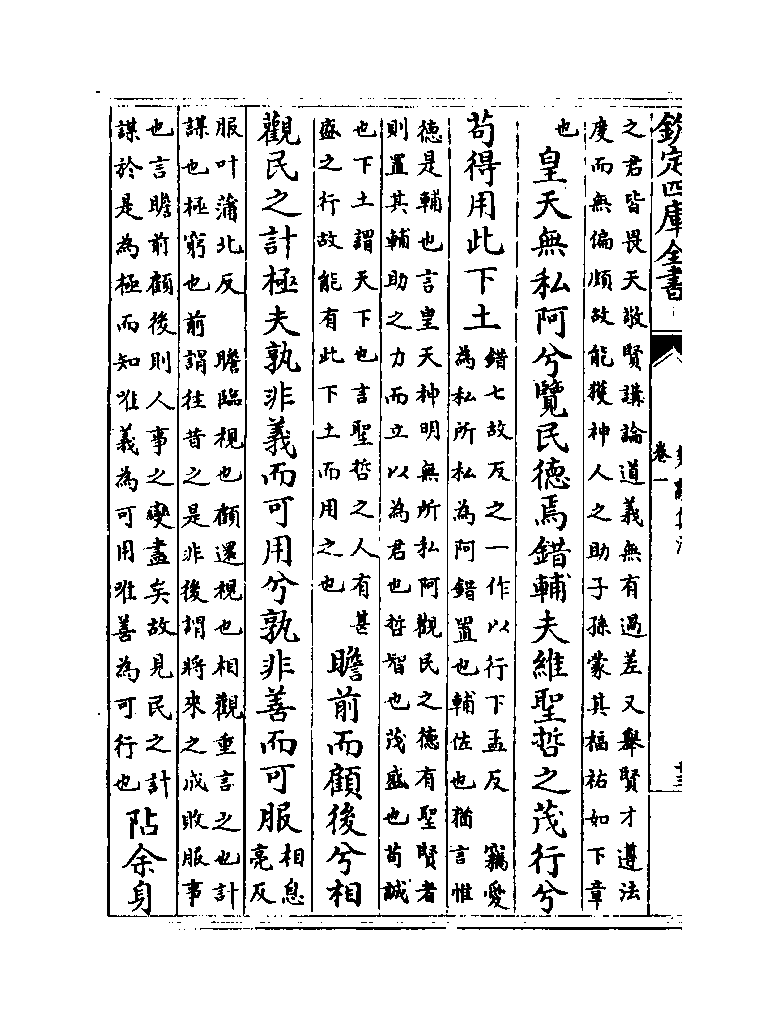 欽定四庫全書
卷一
之君皆畏天敬賢講論道義無有過差又舉賢才遵法
度而無偏頗故能獲神人之助子孫蒙其福祐如下章
也
皇天無私阿兮覽民德焉錯輔夫維聖哲之茂行兮
苟得用此下土
錯七故反之一作以行下孟反 竊愛
為私所私為阿錯置也輔佐也猶言惟
德是輔也言皇天神明無所私阿觀民之德有聖賢者
則置其輔助之力而立以為君也哲智也茂盛也苟誠
也下土謂天下也言聖哲之人有甚
盛之行故能有此下土而用之也
瞻前而顧後兮相
觀民之計極夫孰非義而可用兮孰非善而可服
相息
亮反
服叶蒲北反 瞻臨視也顧還視也相觀重言之也計
謀也極窮也前謂往昔之是非後謂將來之成敗服事
也言瞻前顧後則人事之變盡矣故見民之計
謀於是為極而知唯義為可用唯善為可行也
阽余身